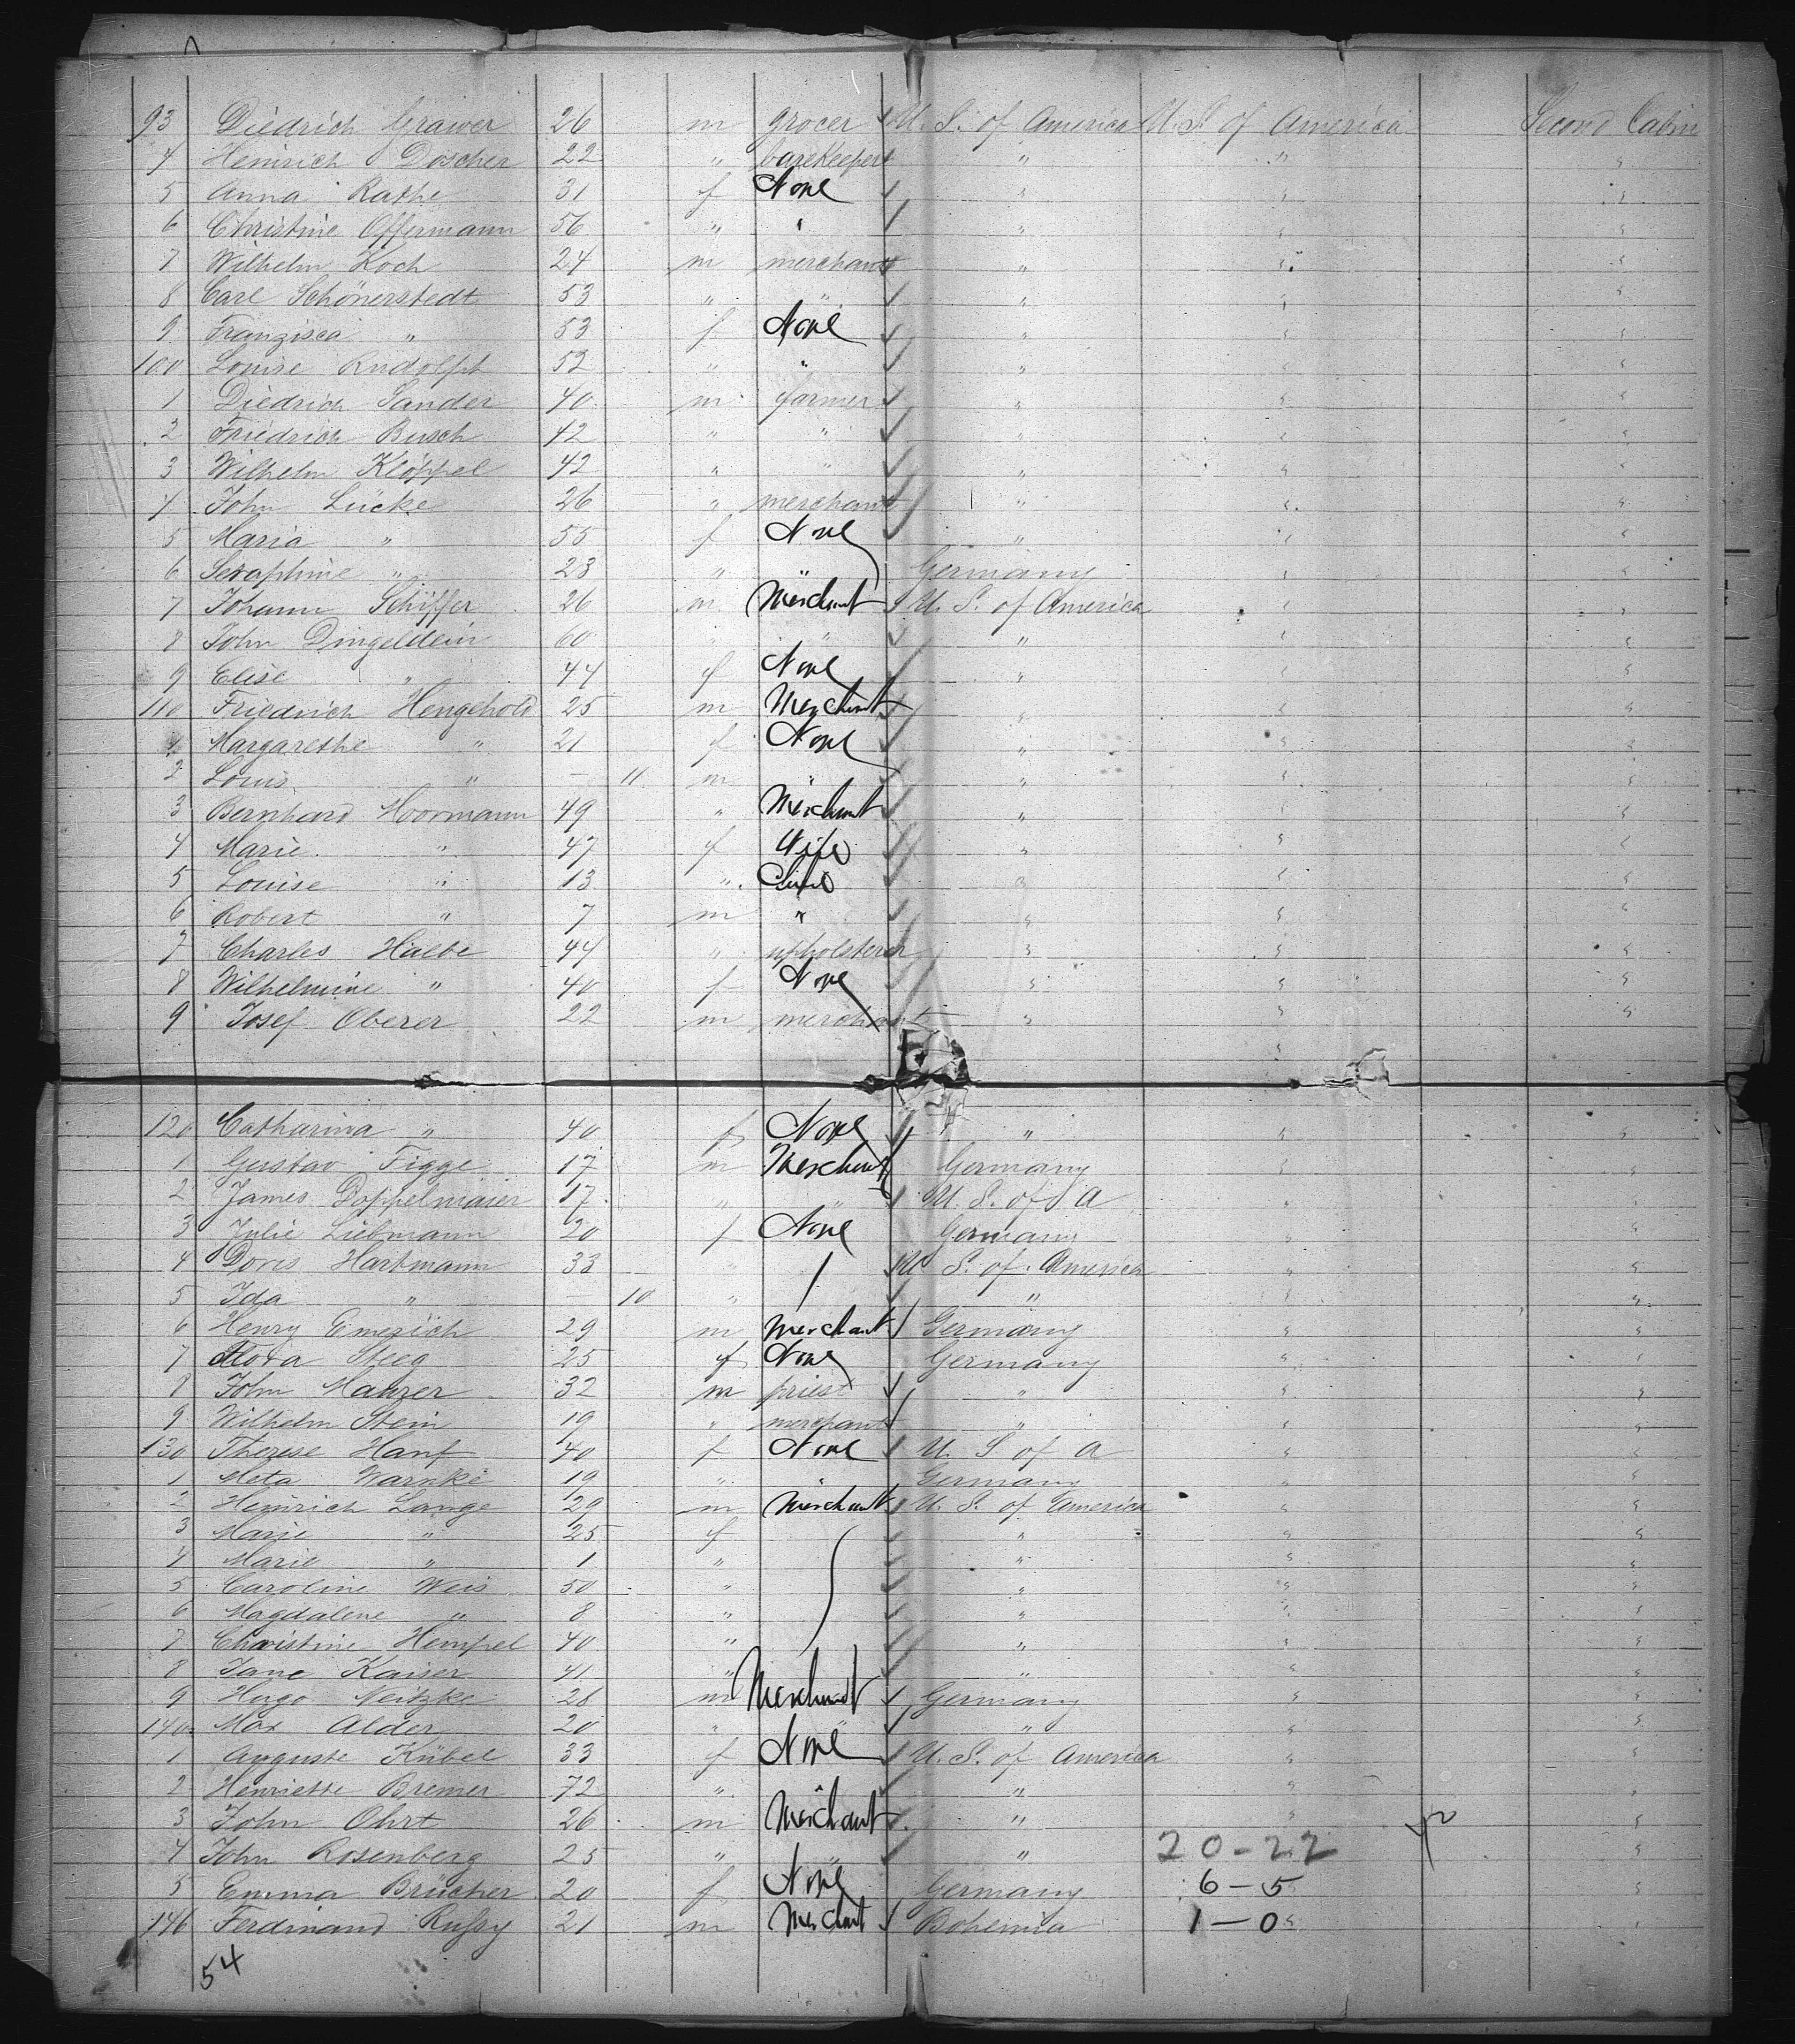 93 Diedrich Grawer 26 m grocer U. S. of America U. S. of America Second Cabin
4 Heinrich Doscher 22 " barekeeper " " "
5 Anna Rathe 31 f None " " "
6 Christine Offermann 56 " " " " "
7 Wilhelm Koch 24 m merchant " " "
8 Carl Schönerstedt 53 " " " " "
9 Franzisca " 53 f None " " "
100 Louise Rudolph 52 " " " " "
1 Diedrich Sander 40 m farmer " " "
2 Friedrich Busch 42 " " " " "
3 Wilhelm Klöppel 42 " " " " "
4 John Lücke 26 " merchant " " "
5 Maria " 55 f None " " "
6 Seraphine " 23 " " Germany " "
7 Johann Schiffer 26 m Merchant U. S. of America " "
8 John Dingeldein 60 " " " " "
9 Elise " 44 f None " " "
110 Friedrich Hengehold 25 m Merchant " " "
1 Margarethe " 21 f None " " "
2 Louis " — 11 m " " " "
3 Bernhard Hoormann 49 " Merchant " " "
4 Marie " 47 f Wife " " "
5 Louise " 13 " Child " " "
6 Robert " 7 m " " " "
7 Charles Halbe 44 " upholsterer " " "
8 Wilhelmine " 40 f None " " "
9 Josef Oberer 22 m merchant " " "
120 Catharina " 40 f None " " "
1 Gustav Figge 17 m Merchant Germany " "
2 James Doppelmaier 17 " " U. S. of A " "
3 Julie Liebmann 20 f None Germany " "
4 Doris Hartmann 33 " U. S. of America " "
5 Ida " — 10 " " " "
6 Henry Emerich 29 m Merchant Germany " "
7 Flora Steeg 25 f None Germany " "
8 John Manzer 32 m priest " " "
9 Wilhelm Stein 19 " merchant " " "
130 Therese Hanf 40 f None U. S of A " "
1 Meta Warnke 19 " " Germany " "
2 Heinrich Lange 29 m Merchant U. S. of America " "
3 Marie " 25 f " " "
4 Marie " 1 " " " "
5 Caroline Weis 50 " " " "
6 Magdalene " 8 " " " "
7 Christine Hempel 40 " " " "
8 Jane Kaiser 41 " " " "
9 Hugo Neitzke 28 m Merchant Germany " "
140 Max Alder 20 " " " " "
1 Auguste Kübel 33 f None U. S. of America " "
2 Henriette Bremer 72 " " " "
3 John Ohrt 26 m Merchant " " "
4 John Rosenberg 25 " " " 20-22 "
5 Emma Brücher 20 f None Germany 6-5 "
146 Ferdinand Russy 21 m Merchant Bohemia 1-0 "
54